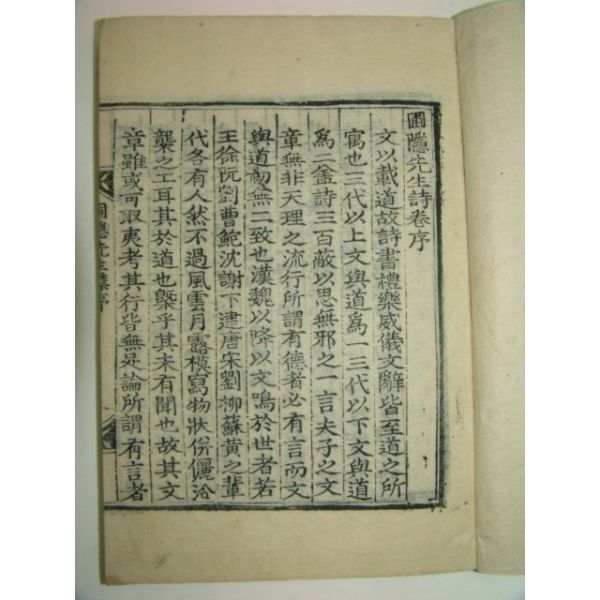 圃隱先生詩卷序
文以載道故詩書禮樂威儀文辭皆至道之所
寓也三代以上文與道爲一三代以下文與道
爲二盖詩三百蔽以思無邪之一言夫子之文
章無非天理之流行所謂有德者必有言而文
與道初無二致也漢魏以降以文鳴於世者若
王徐阮劉曹鮑沈謝下逮唐宋劉柳蘇黃之輩
代各有人然不過風雲月露模寫物狀倂儷沿
襲之工耳其於道也槩乎其未有聞也故其文
章雖或可取夷考其行皆無足論所謂有言者
圃隱先生集序